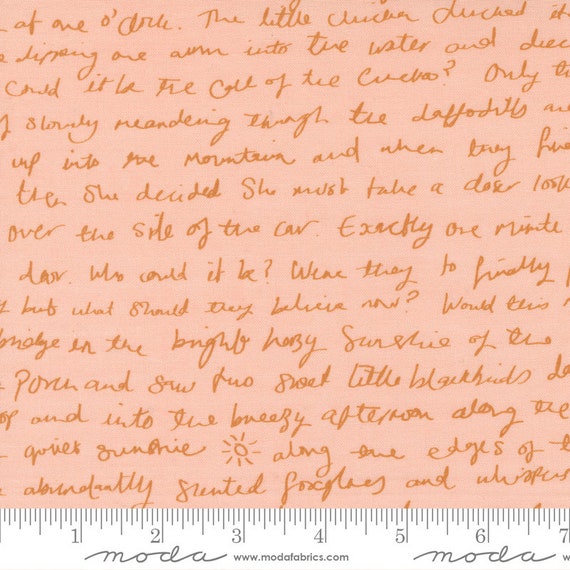 at one O'Clock. The little chicken clucked
dipping one arm into the water and
Could it be The Call of the Cuckoo? Only
slowly meandering through the daffodills
up into the mountain and when they
then She decided She must take a closer look
over the side of the car. Exactly one minute
door. Who could it be? Were they to finally
but what should they believe now? Would this
bridge in the bright hazy Sunshine of the
Porch and saw two sweet little blackbirds
and into the breezy afternoon along the
quiet sunshine along the edges of
abundantly scented foxgloves and
1 2 3 4 5 6 7
moda www.modafabrics.com moda www.modafabrics.com